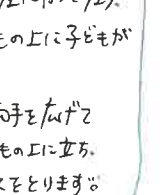 もの上に子どもが
両手を広げて
もの上に立ち、
スをとります。